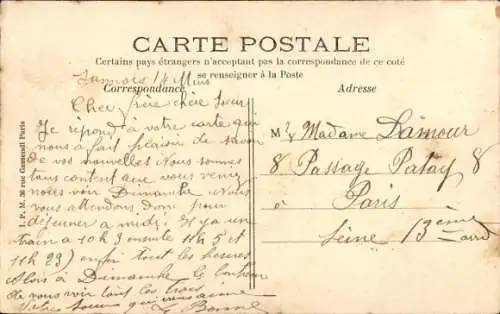 CARTE POSTALE
Certains pays étrangers n'acceptent pas la correspondance de ce coté
se renseigner à la Poste
Correspondance
Adresse
14 Mars
Cher frère chère Sœur
Je répond à votre carte qui
nous a fait plaisir de savoir
de vos nouvelles Nous sommes
tous content que vous venez
nous voir Dimanche Nous
vous attendons donc pour
déjeuner a midi. Il y a un
train a 10h 3 ensuite 11h 5 et
11h 23) enfin tout les heures
Alors à Dimanche le bonheur
de vous voir tous les trois
Sœur qui vous aime
Mr & Madame Lamour
8 Passage Patay 8
à Paris
Seine 13ème arrd
I. P. M. 30 rue Paris